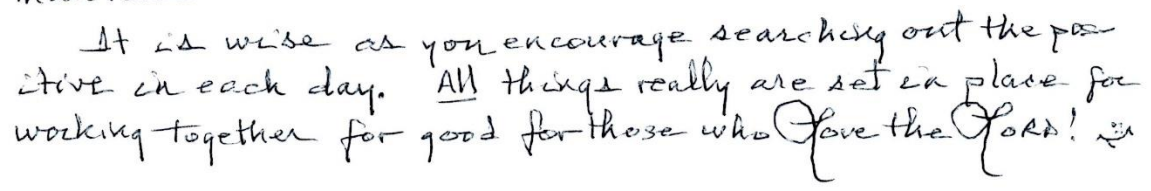 It is wise as you encourage searching out the pos-
itive in each day. All things really are set in place for
working together for good for those who Love the LORD! :)